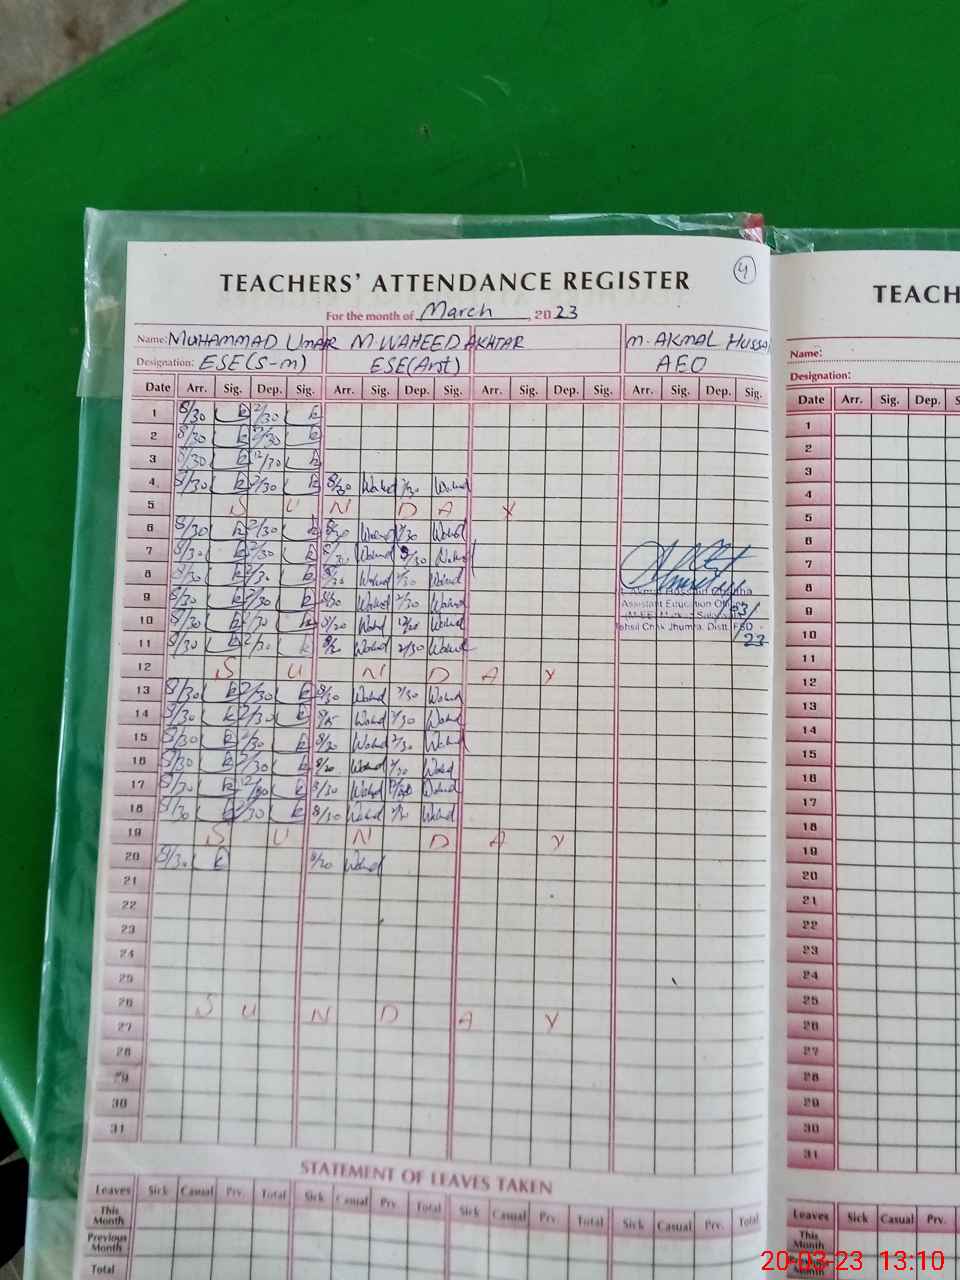 4
TEACHERS' ATTENDANCE REGISTER
TEACH
For the month of March, 2023
Name: MUHAMMAD UMAR M. WAHEED AKHTAR M. AKMAL HUSSA
Designation: ESE(S-m) ESE(Arst) AEO
Name:
Designation:
Date Arr. Sig. Dep. Sig. Arr. Sig. Dep. Sig. Arr. Sig. Dep. Sig. Arr. Sig. Dep. Sig.
Date Arr. Sig. Dep. S
1 8/30 2/30
2 8/30 2/30
3 8/30 12/30
4 8/30 2/30 8/30 Waheed 2/30 Waheed
5 S U N D A Y
6 8/30 2/30 Waheed 2/30 Waheed
7 8/30 2/30 Waheed Waheed
8 8/30 Waheed 2/30 Waheed
9 8/30 2/30 8/30 Waheed 2/30 Waheed
Assistant Education
10 8/30 2/30 8/20 Waheed 12/20 Waheed
Tehsil Chak Jhumra. Distt. FSD
23
11 8/30 2/30 Waheed 2/30 Waheed
12 S U N D A Y
13 8/30 2/30 8/30 Waheed 2/30 Waheed
14 8/30 2/30 Waheed 2/30 Waheed
15 8/30 2/30 8/20 Waheed 2/30 Waheed
16 8/30 2/30 8/20 Waheed 2/30 Waheed
17 8/30 12/30 8/30 Waheed Waheed
18 8/30 2/30 8/30 Waheed Waheed
19 S U N D A Y
20 8/30 8/20 Waheed
21
22
23
24
25
26 S U N D A Y
27
28
29
30
31
1
2
3
4
5
6
7
8
9
10
11
12
13
14
15
16
17
18
19
20
21
22
23
24
25
26
27
28
29
30
31
STATEMENT OF LEAVES TAKEN
Leaves Sick Casual Prv. Total Sick Casual Prv. Total Sick Casual Prv. Total Sick Casual Prv. Total
This Month
Previous Month
Total
Leaves Sick Casual Prv.
This Month
Previous Month
20-03-23 13:10